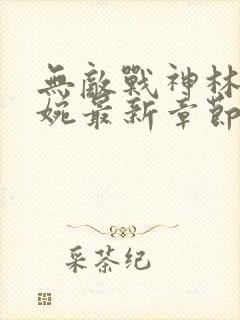 無敵戰神林
婉最新章節
采茶纪